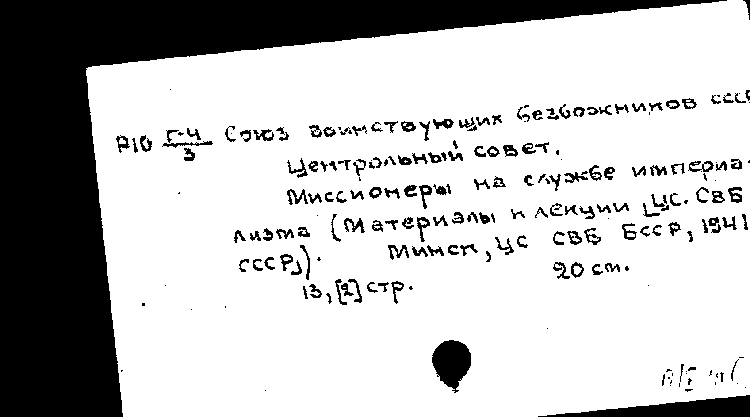 Р10 Г-4/3 Союз воинствующих безбожников СССР
Центрольный совет.
Миссионеры на службе империа-
лизма (Материалы к лекции [ЦС. СВБ
СССР]). Минск, ЦС СВБ БССР, 1941
13, [2] стр. 20 см.